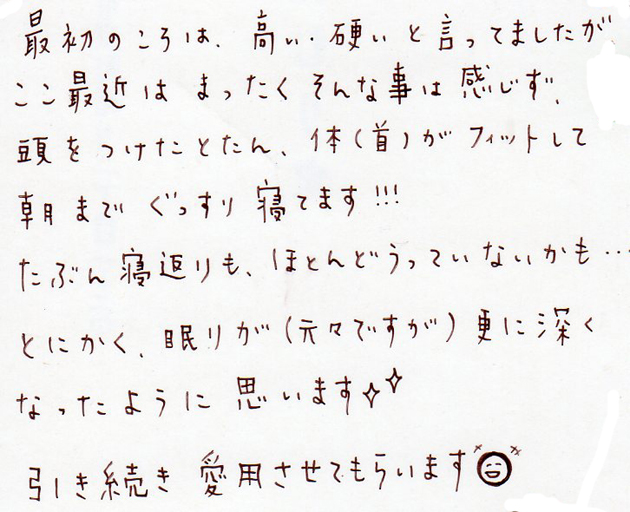 最初のころは、高い・硬いと言ってましたが
ここ最近はまったくそんな事は感じず、
頭をつけたとたん、体(首)がフィットして
朝までぐっすり寝てます!!!
たぶん寝返りも、ほとんどうっていないかも…
とにかく、眠りが(元々ですが)更に深く
なったように思います✧✧
引き続き愛用させてもらいます